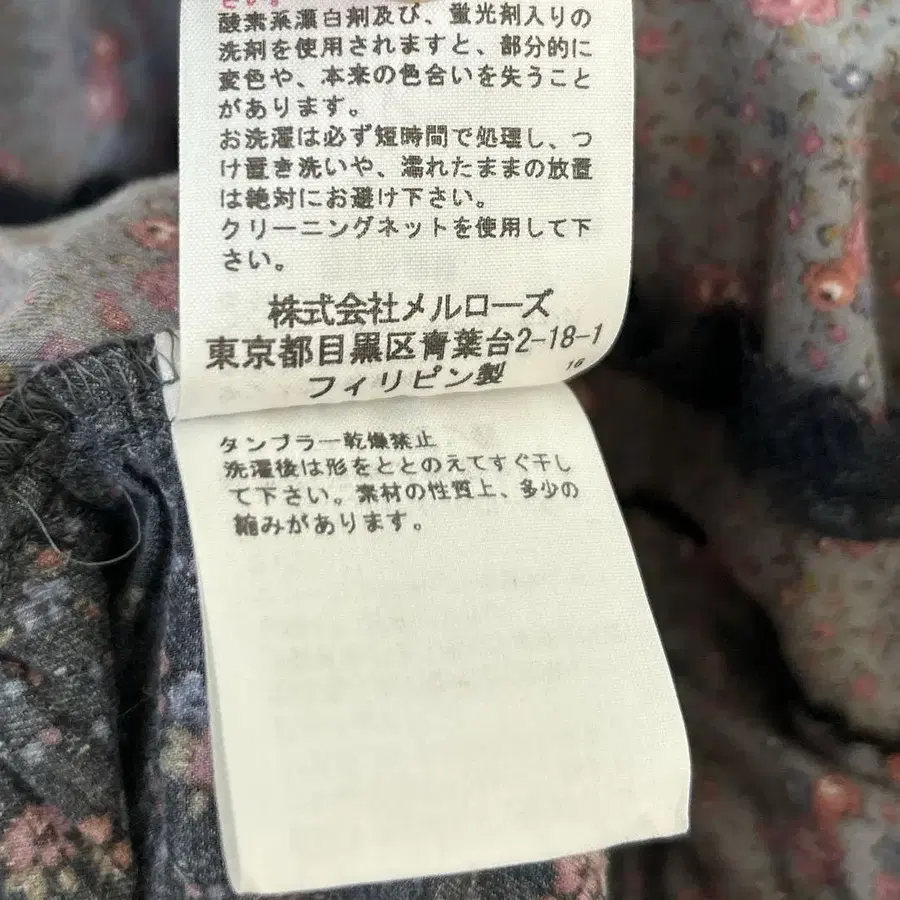 さい。
酸素系漂白剤及び、蛍光剤入りの
洗剤を使用されますと、部分的に
変色や、本来の色合いを失うこと
があります。
お洗濯は必ず短時間で処理し、つ
け置き洗いや、濡れたままの放置
は絶対にお避け下さい。
クリーニングネットを使用して下
さい。
株式会社メルローズ
東京都目黒区青葉台2-18-1
フィリピン製
16
タンブラー乾燥禁止
洗濯後は形をととのえてすぐ干し
て下さい。素材の性質上、多少の
縮みがあります。